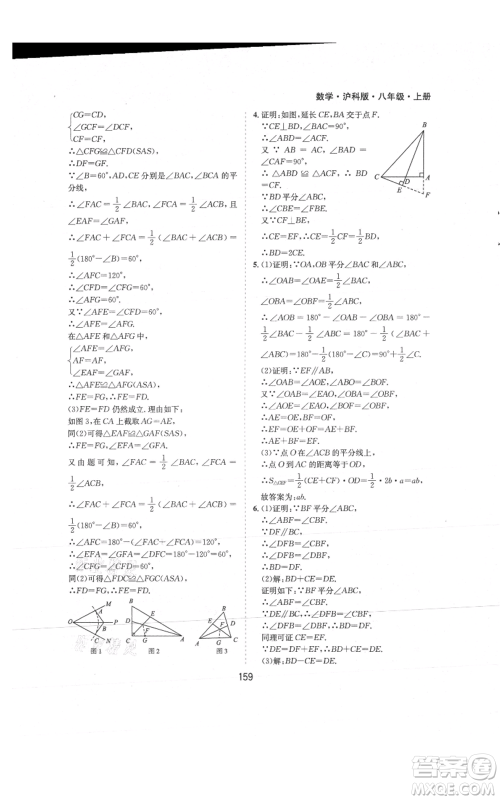 数学·沪科版·八年级·上册
CG=CD,
∠GCF=∠DCF,
CF=CF,
∴△CFG≌△CFD(SAS).
∴DF=GF.
∵∠B=60°,AD,CE分别是∠BAC,∠BCA的平
分线,
∴∠FAC=1/2∠BAC,∠FCA=1/2∠ACB,且
∠EAF=∠GAF.
∴∠FAC+∠FCA=1/2(∠BAC+∠ACB)=
1/2(180°-∠B)=60°.
∴∠AFC=120°.
∴∠CFD=60°=∠CFG.
∴∠AFG=60°.
又∵∠AFE=∠CFD=60°,
∴∠AFE=∠AFG.
在△AFE和△AFG中,
∠AFE=∠AFG,
AF=AF,
∠EAF=∠GAF,
∴△AFE≌△AFG(ASA).
∴FE=FG.∴FE=FD.
(3)FE=FD仍然成立.理由如下:
如图3,在CA上截取AG=AE,
同(2)可得△AEF≌△AGF(SAS).
∴FE=FG,∠EFA=∠GFA.
又由题可知,∠FAC=1/2∠BAC,∠FCA=
1/2∠ACB,
∴∠FAC+∠FCA=1/2(∠BAC+∠ACB)=
1/2(180°-∠B)=60°.
∴∠AFC=180°-(∠FAC+∠FCA)=120°.
∴∠EFA=∠GFA=∠DFC=60°.
∴∠CFG=∠CFD=60°.
同(2)可得△FDC≌△FGC(ASA).
∴FD=FG.∴FE=FD.
图1
图2
图3
4.证明:如图,延长CE,BA交于点F.
∵CE⊥BD,∠BAC=90°,
∴∠CAF=∠BEF=90°.
又∵∠ACF+∠F=90°,
∠ABD+∠F=90°,
∴∠ABD=∠ACF.
又∵AB=AC,
∴△ABD≌△ACF(ASA).
∴BD=CF.
∵BD平分∠ABC,
∴∠CBE=∠FBE.
又∵CF⊥BE,
∴CE=EF.∴CF=2CE.
∴BD=2CE.
5.(1)证明:∵OA,OB平分∠BAC和∠ABC,
∴∠OAB=1/2∠BAC,∠OBA=1/2∠ABC.
∴∠AOB=180°-∠OAB-∠OBA=180°-
(2)证明:∵EF∥AB,
∴∠OAB=∠AOE,∠ABO=∠BOF.
又∵∠OAB=∠EAO,∠OBA=∠OBF,
∴∠AOE=∠EAO,∠BOF=∠OBF.
∴AE=OE,BF=OF.
∴EF=OE+OF=AE+BF.
(3)∵点O在∠ACB的平分线上,
∴点O到AC的距离等于OD.
故答案为:ab.
6.(1)证明:∵BF平分∠ABC,
∴∠ABF=∠CBF.
∵DF∥BC,
∴∠DFB=∠CBF.
∴∠ABF=∠DFB.
∴BD=DF.
(2)解:BD-CE=DE.
证明如下:∵BF平分∠ABC,
∴∠ABF=∠CBF.
∵DF∥BC,∴∠DFB=∠CBF.
∴∠ABF=∠DFB.∴BD=DF.
同理可证CE=EF.
∵DF-EF=DE,∴BD-CE=DE.
(3)解:BD-CE=DE.
159